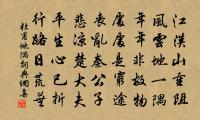 江漢山重阻
風雲地一隅
年年非故物
處處是窮途
喪亂秦公子
悲涼楚大夫
平生心已折
行路日荒蕪
杜甫地隅詞典網集